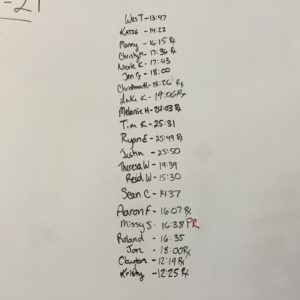 -21
Wes T - 13:47
Katie - 14:23
Manny - 16:15 Rx
Christy - 17:36 Rx
Nicole K - 17:43
Jen S - 18:00
Christina K - 18:26 Rx
Luke K - 19:06 Rx
Melanie H - 24:03 Rx
Tim K - 25:31
Ryan E - 25:49 Rx
Justin - 25:50
Theresa W - 19:39
Reid W - 15:30
Sean C - 14:37
Aaron F - 16:07 Rx
Missy J. 16:38 PR
Roland - 16:35
Jon - 18:00 Rx
Clayton - 12:19 Rx
Kristy - 12:25 Rx